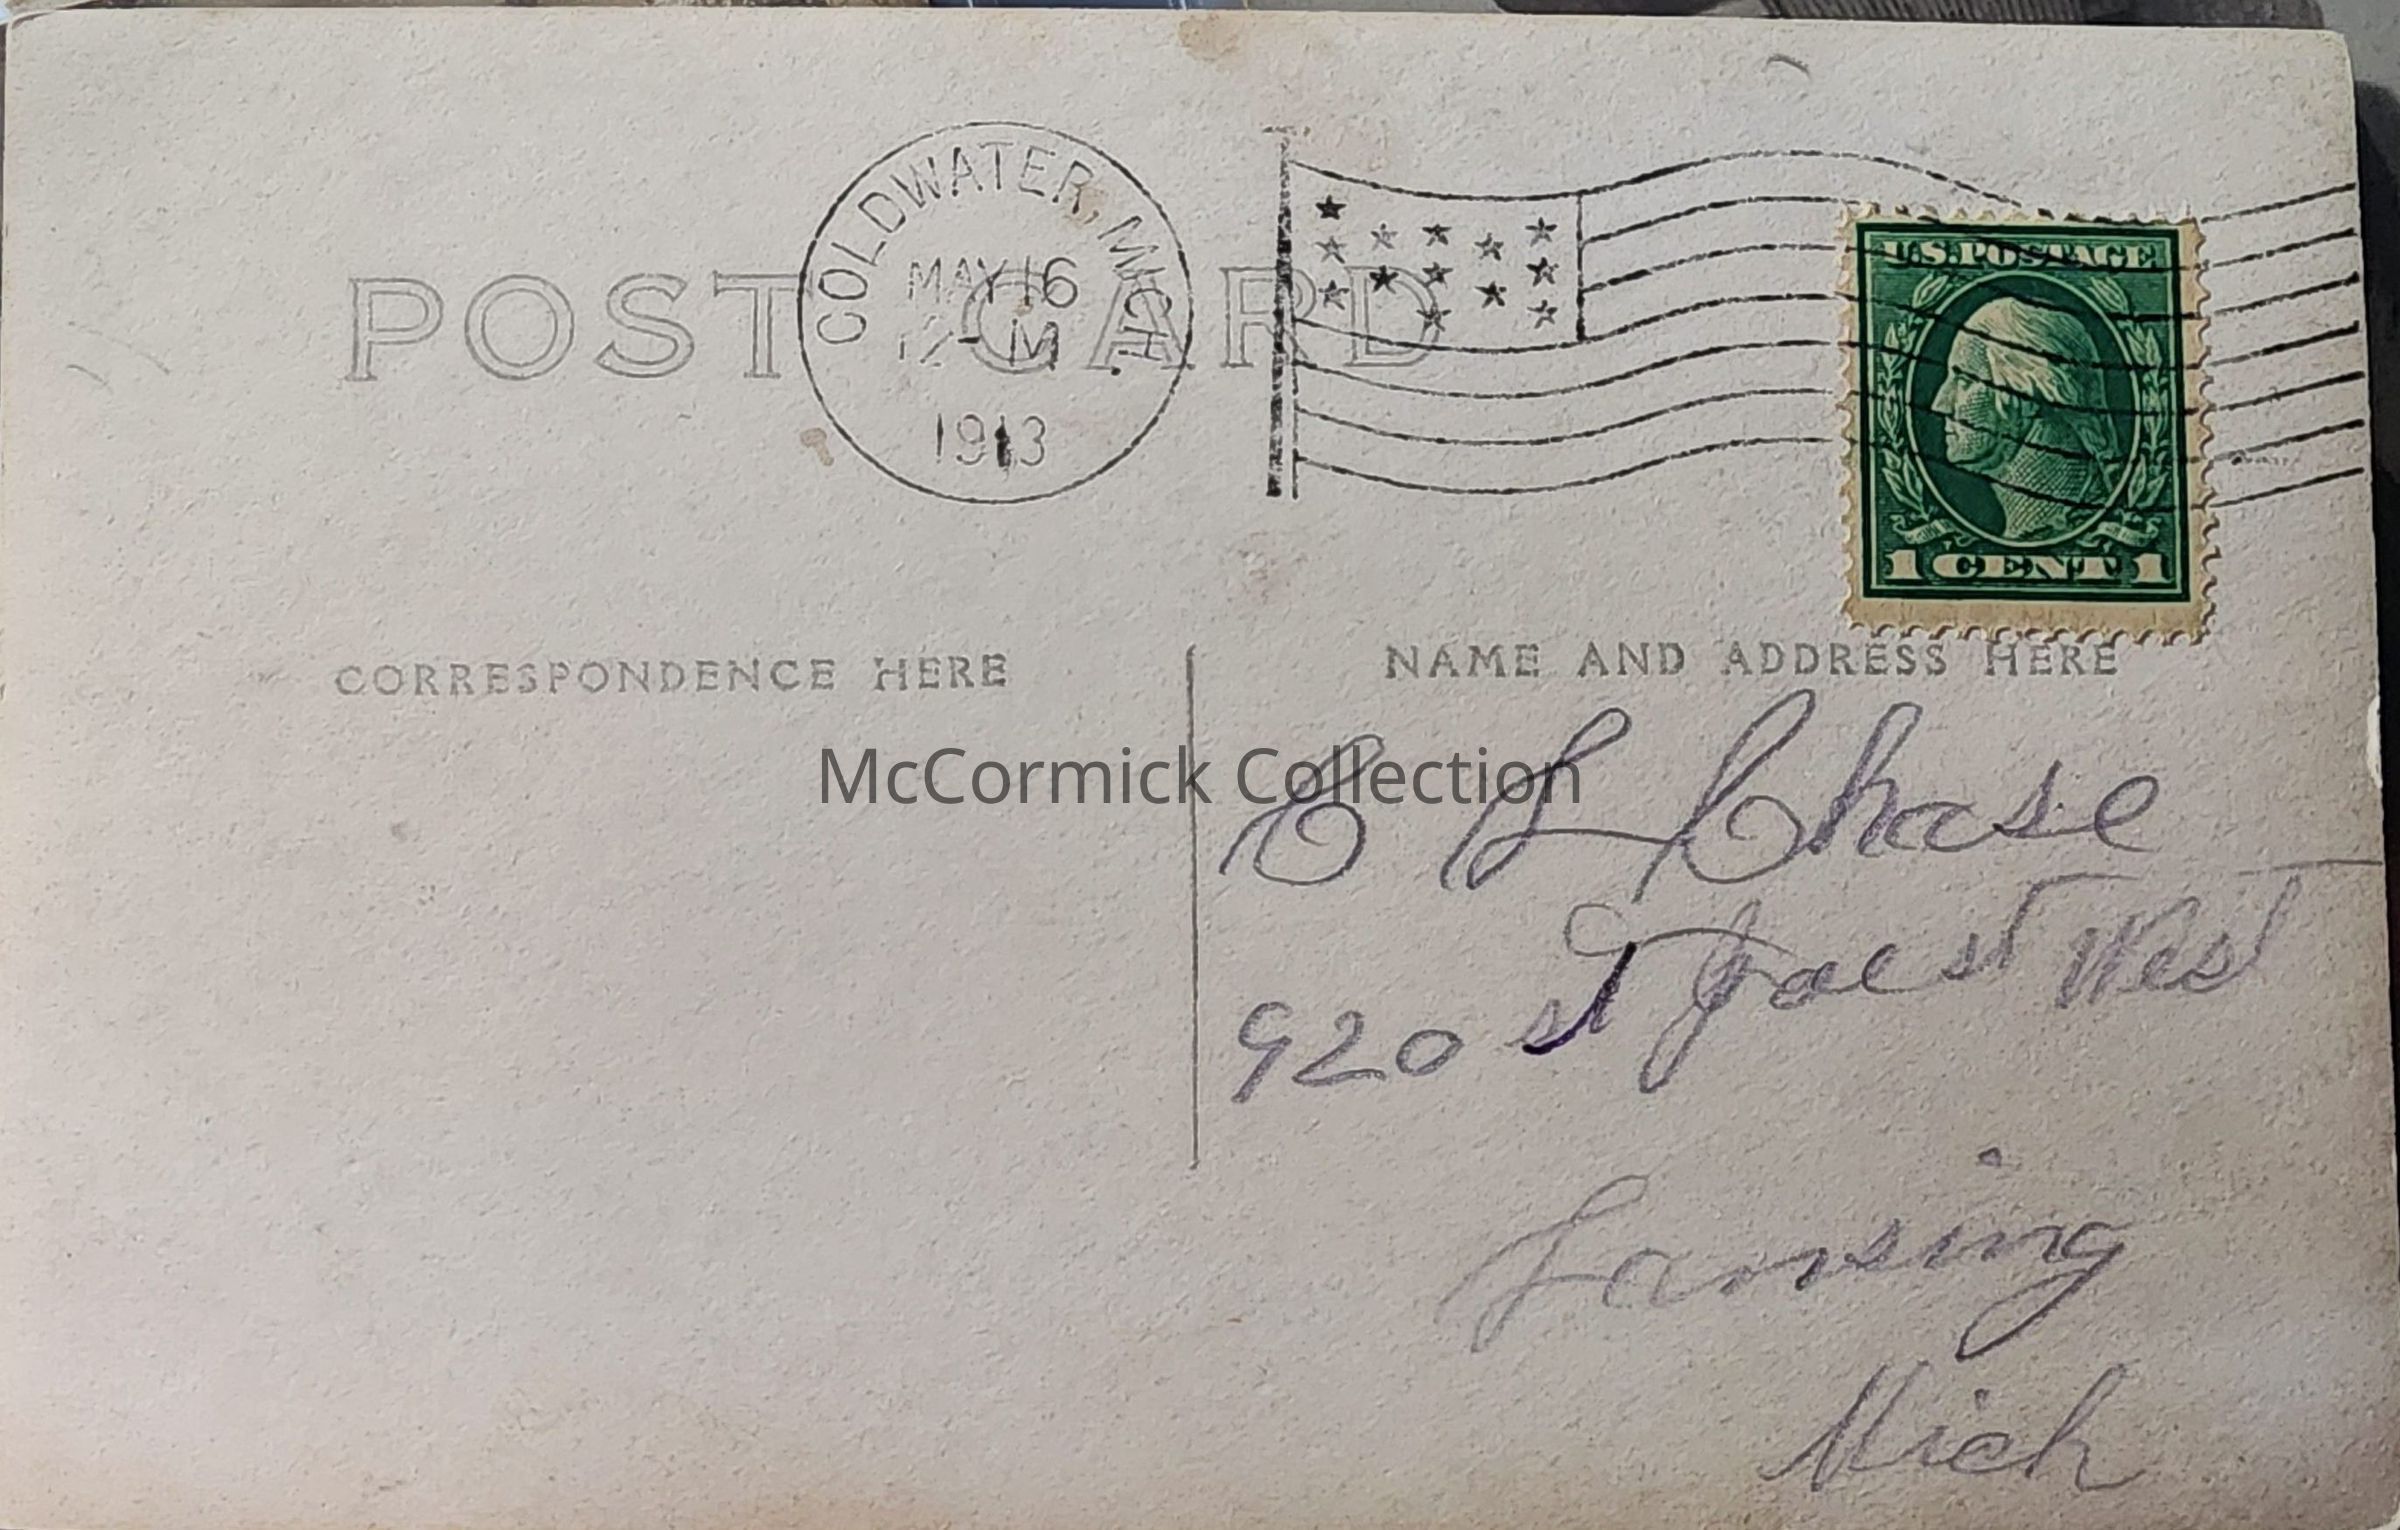 POST CARD
COLDWATER, MICH.
MAY 16
12 - M
1913
U.S. POSTAGE
1 CENT 1
CORRESPONDENCE HERE
NAME AND ADDRESS HERE
McCormick Collection
C L Chase
920 st Joe st West
Lansing
Mich